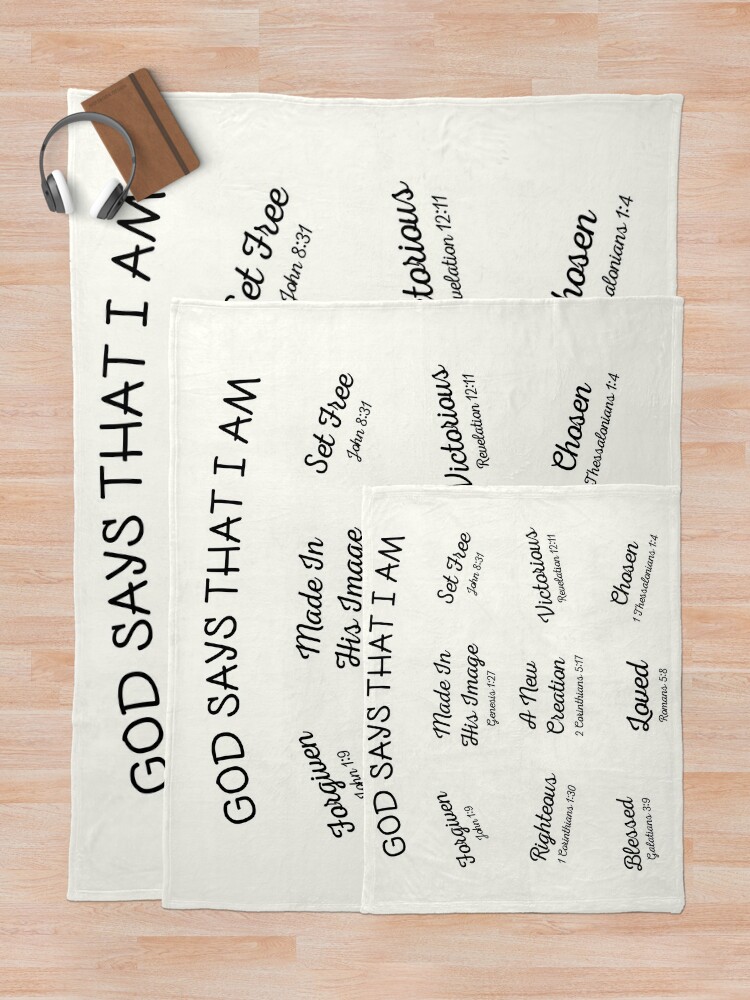 GOD SAYS THAT I AM
et Free
John 8:31
torious
velation 12:11
hosen
alonians 1:4
GOD SAYS THAT I AM
Forgiven
John 1:9
Made In
His Image
Set Free
John 8:31
Victorious
Revelation 12:11
Chosen
Thessalonians 1:4
GOD SAYS THAT I AM
Forgiven
John 1:9
Made In
His Image
Genesis 1:27
Set Free
John 8:31
Righteous
1 Corinthians 1:30
A New
Creation
2 Corinthians 5:17
Victorious
Revelation 12:11
Blessed
Galatians 3:9
Loved
Romans 5:8
Chosen
1 Thessalonians 1:4